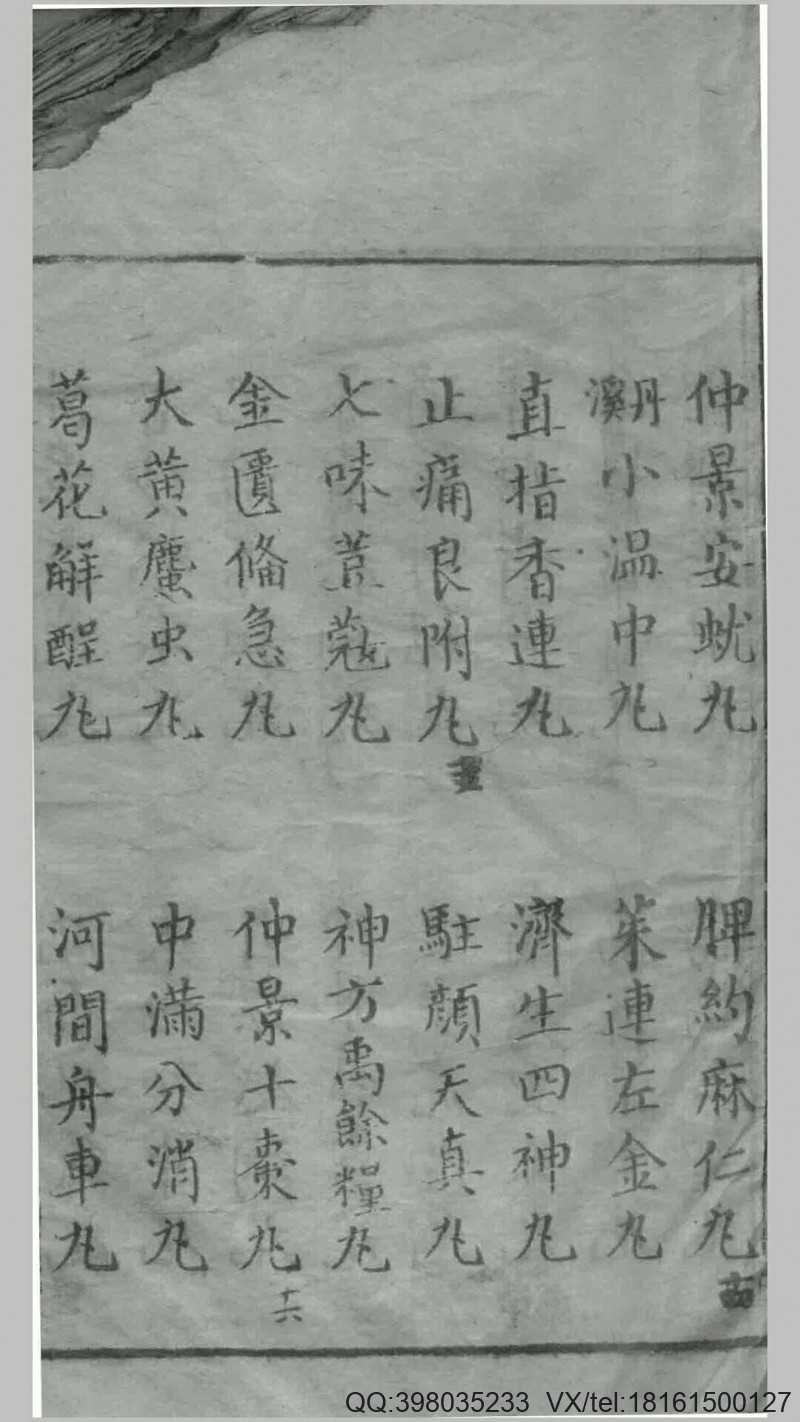 仲景安蚘丸
脾約麻仁丸
丹溪小温中丸
茱連左金丸
直指香連丸
濟生四神丸
止痛良附丸
駐顔天真丸
七味荳蔻丸
神方禹餘糧丸
金匱俻急丸
仲景十棗丸
十六
大黄䗪虫丸
中滿分消丸
葛花解醒丸
河間舟車丸
QQ:398035233 VX/tel:18161500127